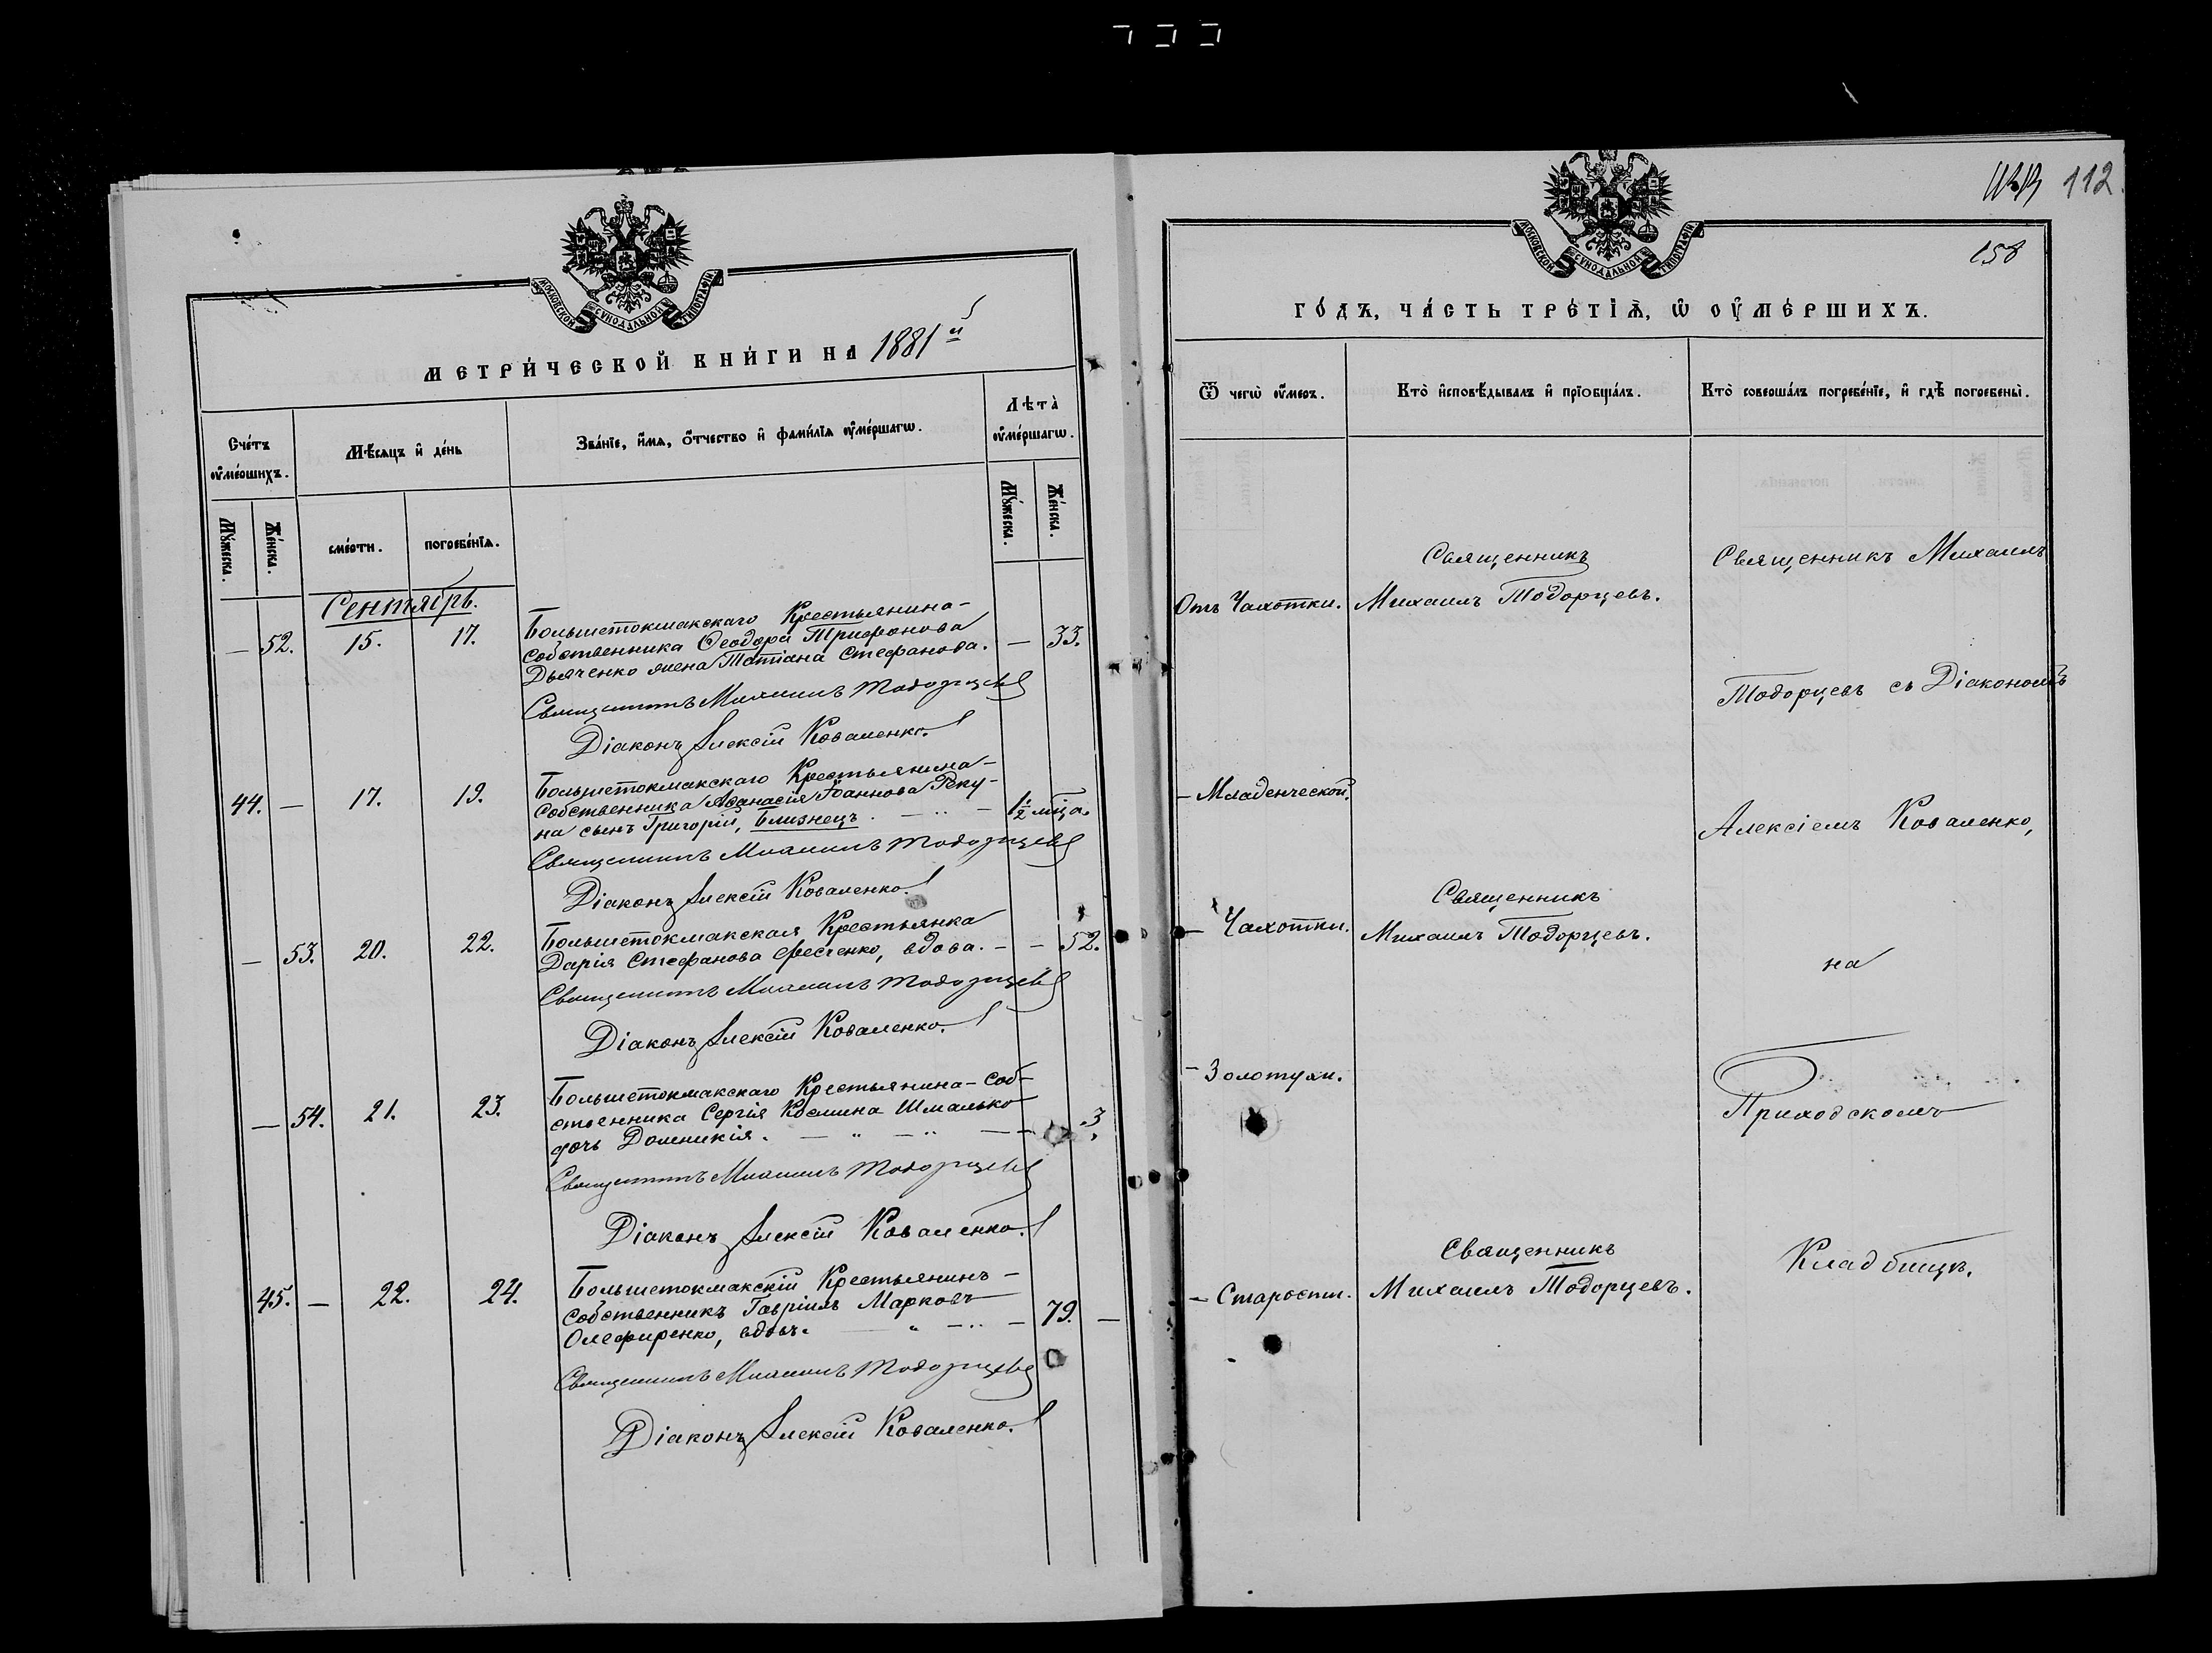 МОСКОВСКОЙ СѴНОДАЛЬНОЙ ТИПОГРАФІИ
МЕТРИ́ЧЕСКОЙ КНИ́ГИ НА 1881й
Сче́тъ ᲂу҆ме́ршихъ.
Мѣ́сяцъ и҆ де́нь
Зва́нїе, и҆́мѧ, ѻ҆́тчество и҆ фами́лїѧ ᲂу҆ме́ршагѡ.
Лѣ́та ᲂу҆ме́ршагѡ.
Мꙋ́жеска.
Же́нска.
сме́рти.
погребе́нїѧ.
Мꙋ́жеска.
Же́нска.
Сентябрь.
— 52. 15. 17.
Большетокмакскаго Крестьянина-
собственника Ѳеодора Трифонова
Дьяченко жена Татіана Стефанова. — 33.
Священникъ Михаилъ Тодорцевъ
Діаконъ Алексій Коваленко.
44. — 17. 19.
Большетокмакскаго Крестьянина-
собственника Аѳанасія Іоаннова Реку-
на сынъ Григорій, близнецъ. — 1½ мѣца.
Священникъ Михаилъ Тодорцевъ
Діаконъ Алексій Коваленко.
— 53. 20. 22.
Большетокмакская Крестьянка
Дарія Стефанова Фесченко, вдова. — — 52.
Священникъ Михаилъ Тодорцевъ
Діаконъ Алексій Коваленко.
— 54. 21. 23.
Большетокмакскаго Крестьянина-соб-
ственника Сергія Космина Шмалько
дочь Домникія. — 3.
Священникъ Михаилъ Тодорцевъ
Діаконъ Алексій Коваленко.
45. — 22. 24.
Большетокмакскій Крестьянинъ-
собственникъ Гавріилъ Марковъ
Олефиренко, вдовъ. — 79. —
Священникъ Михаилъ Тодорцевъ
Діаконъ Алексій Коваленко.
112.
158
МОСКОВСКОЙ СѴНОДАЛЬНОЙ ТИПОГРАФІИ
ГО́ДЪ, ЧА́СТЬ ТРЕ́ТІѦ, Ѡ҆ ОУ҆МЕ́РШИХЪ.
Ѿ чегѡ̀ ᲂу҆́меръ.
Кто̀ и҆сповѣ́дывалъ и҆ прїѡбща́лъ.
Кто̀ соверша́лъ погребе́нїе, и҆ гдѣ̀ погребены̀.
Отъ Чахотки.
Священникъ
Михаилъ Тодорцевъ.
Священникъ Михаилъ
Тодорцевъ съ Діакономъ
— Младенческой.
Алексіемъ Коваленко,
— Чахотки.
Священникъ
Михаилъ Тодорцевъ.
на
— Золотухи.
Приходскомъ
— Старости.
Священникъ
Михаилъ Тодорцевъ.
Кладбищѣ.